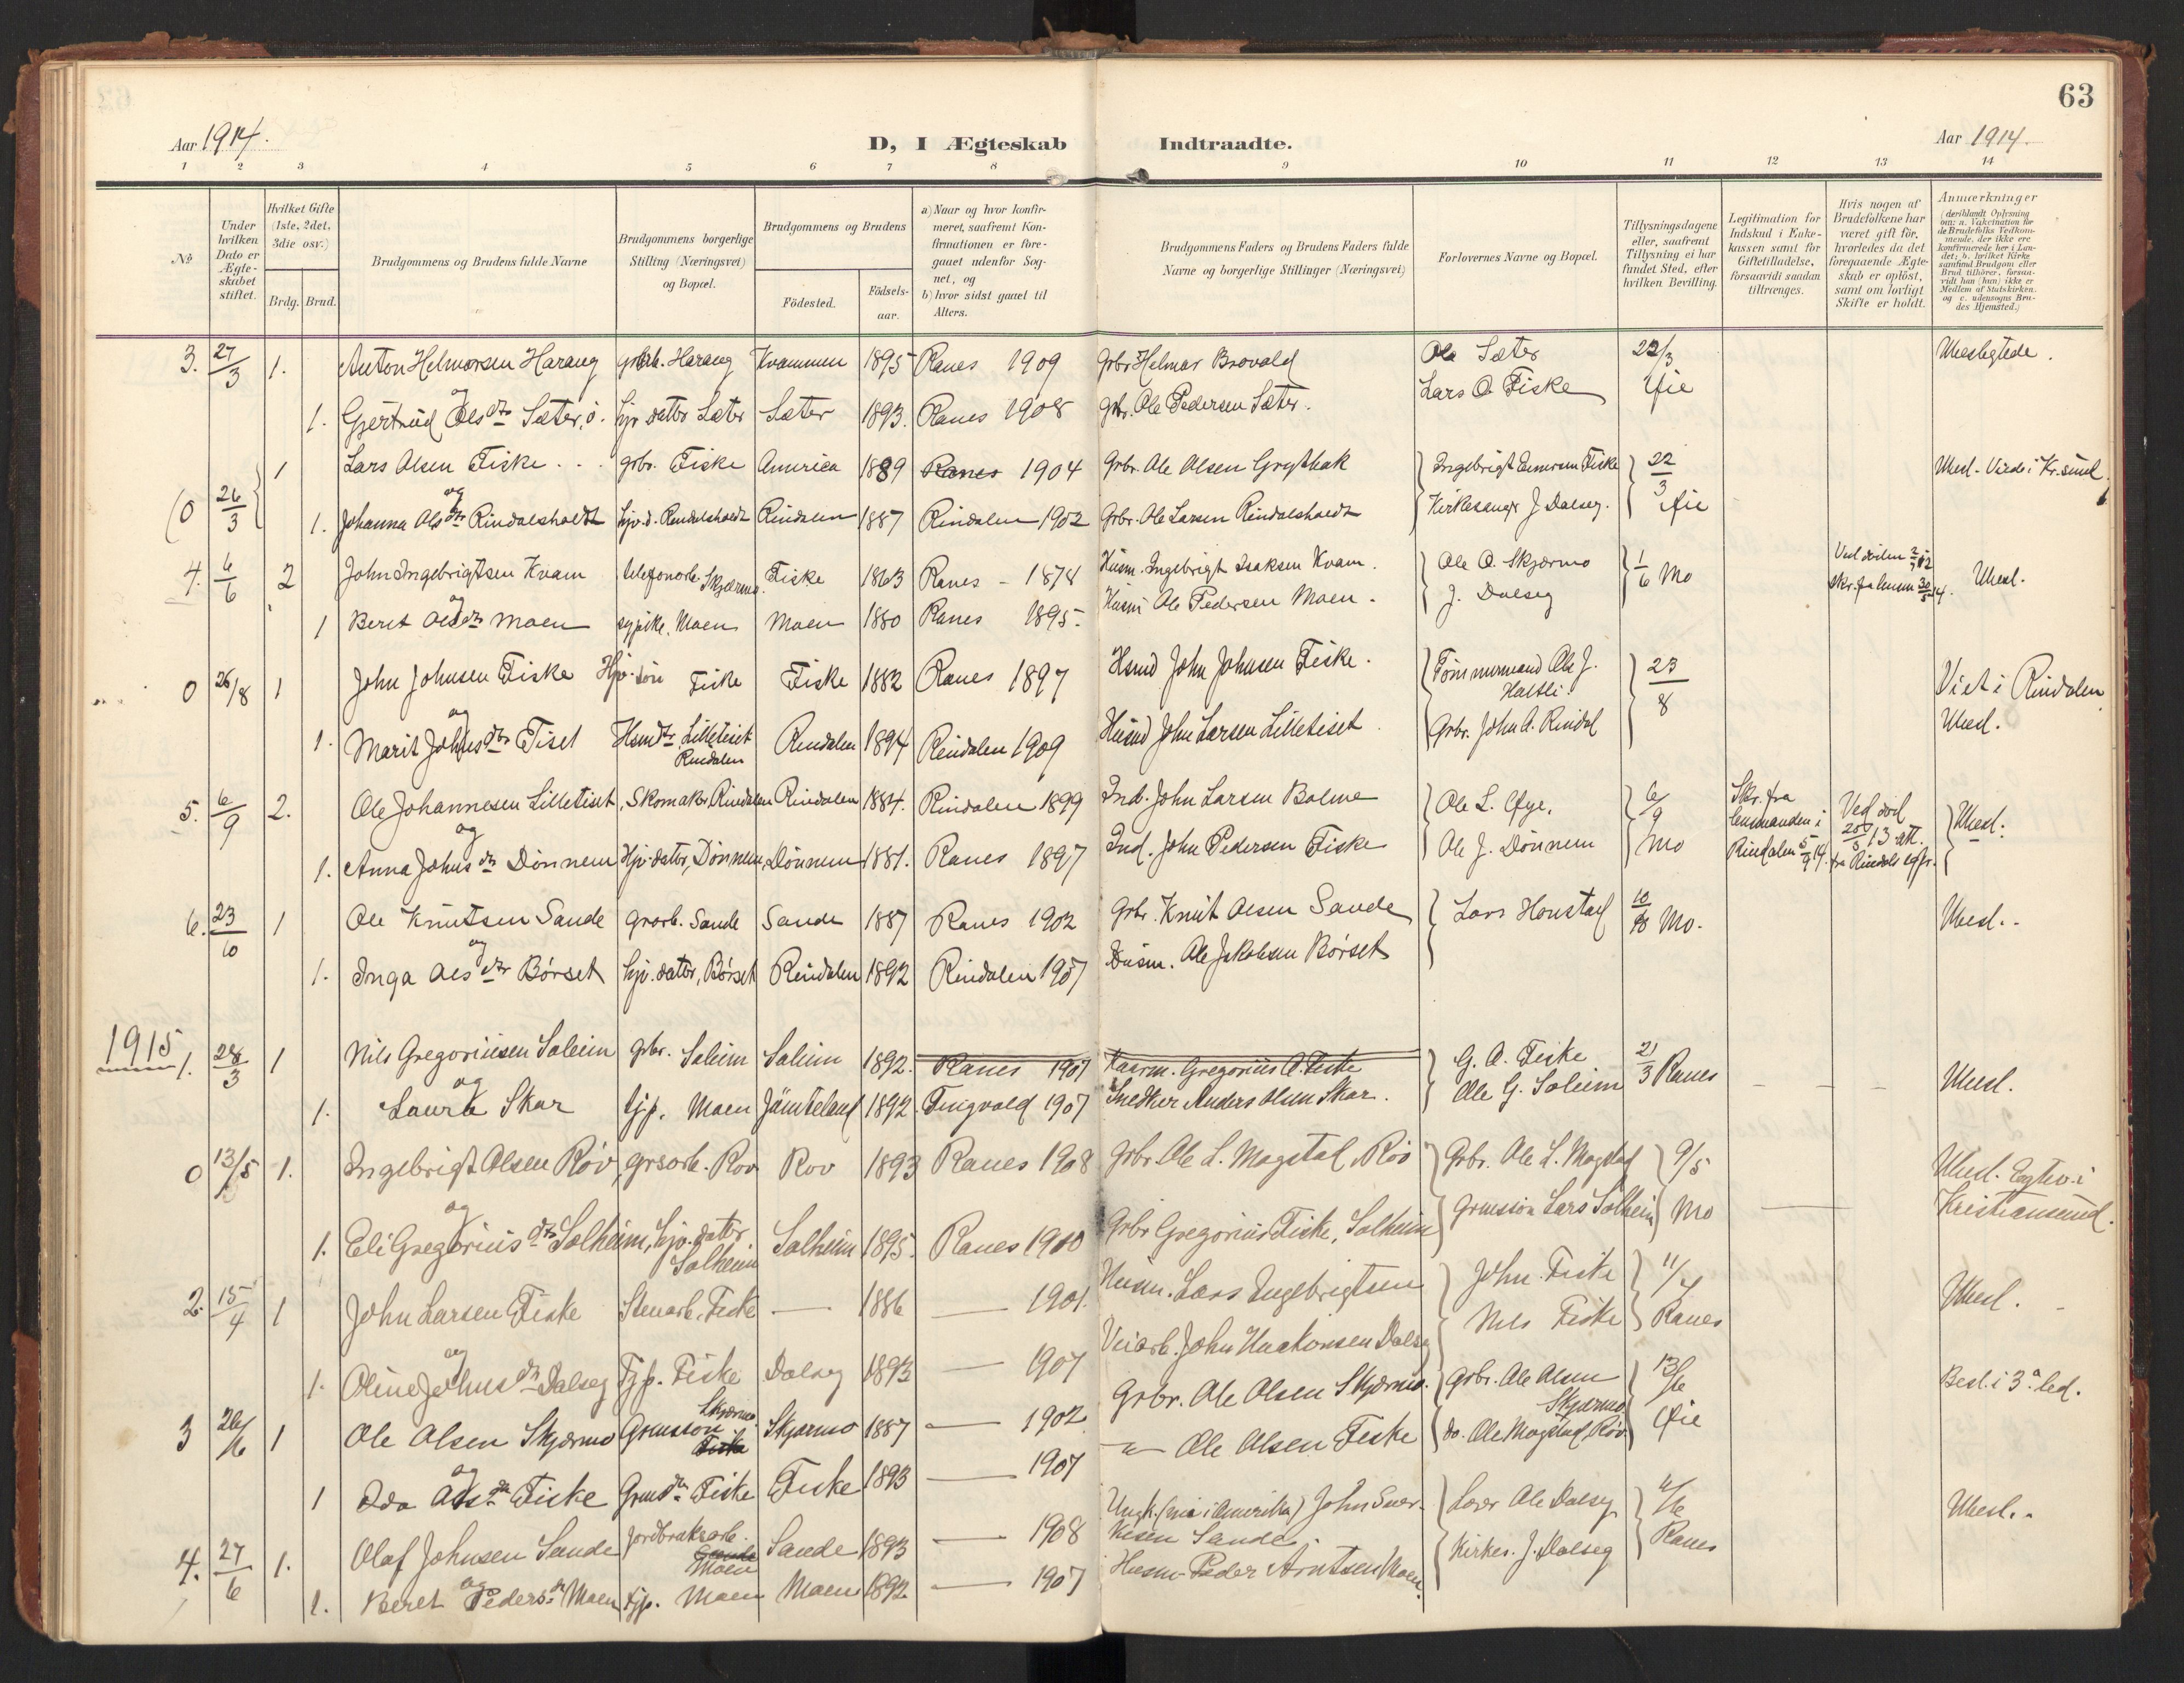 63
Aar 1914.
D, I Ægteskab Indtraadte.
Aar 1914.
1 2 3 4 5 6 7 8 9 10 11 12 13 14
No
Under hvilken Dato er Ægteskabet stiftet.
Hvilket Gifte (1ste, 2det, 3die osv.)
Brdg. Brud.
Brudgommens og Brudens fulde Navne
Brudgommens borgerlige Stilling (Næringsvei) og Bopæl.
Brudgommens og Brudens
Födested.
Födselsaar.
a) Naar og hvor konfirmeret, saafremt Konfirmationen er foregaaet udenfor Sognet, og
b) hvor sidst gaaet til Alters.
Brudgommens Faders og Brudens Faders fulde Navne og borgerlige Stillinger (Næringsvei)
Forlovernes Navne og Bopæl.
Tillysningsdagene eller, saafremt Tillysning ei har fundet Sted, efter hvilken Bevilling.
Legitimation for Indskud i Enkekassen samt for Giftetilladelse, forsaavidt saadan tiltrænges.
Hvis nogen af Brudefolkene har været gift för, hvorledes da det foregaaende Ægteskab er oplöst, samt om lovligt Skifte er holdt.
Anmærkninger (deriblandt Oplysning om: a. Vakcination for de Brudefolks Vedkommende, der ikke ere konfirmerede her i Landet; b. hvilket Kirkesamfund Brudgom eller Brud tilhörer, forsaavidt han (hun) ikke er Medlem af Statskirken, og c. udensogns Brudes Hjemsted.)
3. 27/3 1. Anton Helmersen Harang grbr. Harang Kvammen 1895 Ranes 1909 Grbr. Helmar Brovold Ole Sæter 22/3 Ubeslegtede.
og Lars O. Fiske Øie
1. Gjertrud Olsdtr Sæter, ö. hjv. datter Sæter Sæter 1893. Ranes 1908 grbr. Ole Pedersen Sæter.
1 Lars Olsen Fiske grbr. Fiske America 1889 Ranes 1904 Grbr. Ole Olsen Grythak Ingebrigt Fiske 22/3 Ubesl. Viede i Kr.sund
(0 26/3 og
1. Johanna Olsdtr Rindalsholdt hjv. d. Rindalsholdt Rindalen 1887 Rindalen 1902 Grbr. Ole Larsen Rindalsholdt Kirkesanger J. Dalseg. Øie
4. 6/6 2 John Ingebrigtsen Kvam telefonarb. Skjærmo. Fiske 1863 Ranes - 1878 Husm. Ingebrigt Isaksen Kvam. Ole O. Skjærmo 1/6 Mo Ved döden Ubesl.
og
1 Beret Olsdtr Moen sypike. Moen Moen 1880 Ranes 1895. Husm Ole Pedersen Moen. J. Dalseg
0 26/8 1 John Johnsen Fiske Hjv. sön Fiske Fiske 1882 Ranes 1897 Hsmd John Johnsen Fiske. Tömmermand Ole J. Haltli. 23/8 Viet i Rindalen
og
1. Marit Johnsdtr Tiset Hsmdtr. Lilletiset Rindalen Rindalen 1894 Rindalen 1909 Husmd John Larsen Lilletiset Grbr. John A. Rindal Ubesl.
5. 6/9 2. Ole Johannesen Lilletiset, Skomaker, Rindalen Rindalen 1884. Rindalen 1899 Ind. John Larsen Bolme Ole L. Øye. 6/9 Skr. fra lensmanden i Rindalen 5/9 14. Ved död 20/5 13 att. fra Rindals Ubesl.
og
1. Anna Johnsdtr Dönnem Hjv. datter, Dönnem, Dönnem 1881. Ranes 1897 Ind. John Pedersen Fiske Ole J. Dönnem Mo
6. 23/10 1 Ole Knutsen Sande grarb. Sande Sande 1887 Ranes 1902 Grbr. Knut Olsen Sande Lars Honstad 10/10 Mo. Ubesl.
og
1. Inga Olsdtr Börset hjv. datter, Börset Rindalen 1892 Rindalen 1907 Husm. Ole Jakobsen Börset
1915
1. 28/3 1 Nils Gregoriusen Soleim grbr. Soleim Soleim 1892. Ranes 1907 Gregorius O. Fiske G. O. Fiske 21/3 Ranes Ubesl.
og
1. Laura Skar tjp. Moen Jämteland 1892. Tingvold 1907 Snedker Anders Olsen Skar. Ole G. Soleim
0 13/5 1. Ingebrigt Olsen Röv, grsarb. Rov Rov 1893 Ranes 1908 Grbr. Ole L. Magstad, Röv Grbr. Ole L. Magstad 9/5 Ubesl. Egtev. i Kristiansund.
og
1. Eli Gregoriusdtr Solheim, hjv. datter Solheim Solheim 1895. Ranes 1910 Grbr Gregorius Fiske, Solheim Grmsön Lars Solheim Mo
2. 15/4 1 John Larsen Fiske Stenarb. Fiske — 1886 — 1901. Husm. Lars Ingebrigtsen John Fiske 11/4 Ubesl.
og
1. Oline Johnsdtr Dalseg Tjp. Fiske Dalseg 1893 — 1907 Veiarb. John Haakonsen Dalseg Nils Fiske Ranes
3 26/6 1 Ole Olsen Skjærmo Grmssön Skjærmo Fiske Skjærmo 1887 — 1902 Grbr. Ole Olsen Skjærmo. Grbr. Ole Olsen Skjærmo 13/6 Besl. i 3. led.
og
1 Ida Olsdtr Fiske Grmsdtr Fiske Fiske 1893 — 1907 Ole Olsen Fiske do. Ole Magstad, Röv Øie
4. 27/6 1. Olaf Johnsen Sande Jordbruksarb. Sande Moen Sande 1893 — 1908 Ungk. (nu i Amerika) John Sande. Lærer Ole Dalseg 6/6 Ubesl.
og
1. Beret Pedersdtr Moen tjp. Moen Moen 1892 — 1907 Husm. Peder Arntsen Moen. Kirkes. J. Dalseg Ranes